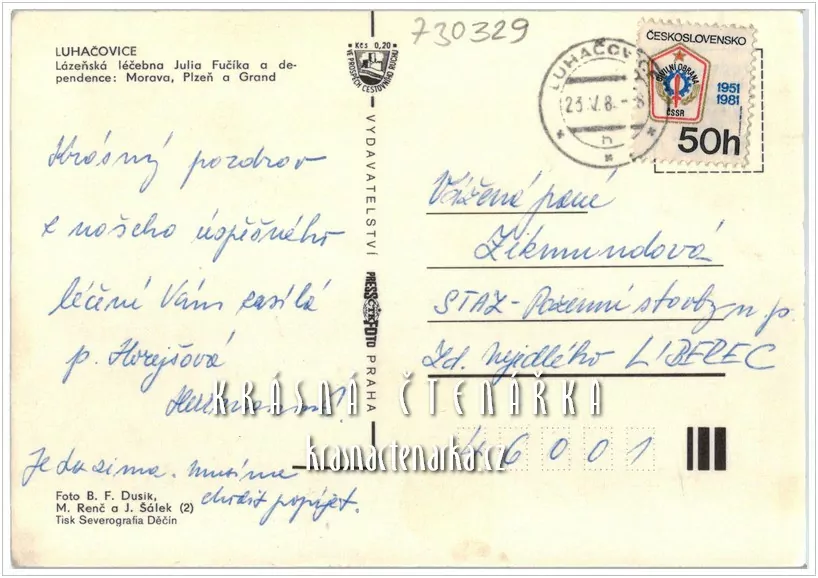 730329
LUHAČOVICE
Lázeňská léčebna Julia Fučíka a de-
pendence: Morava, Plzeň a Grand
Kčs 0,20
VE PROSPĚCH CESTOVNÍHO RUCHU
LUHAČOVICE
23.V.8 -8
h
ČESKOSLOVENSKO
CIVILNÍ OBRANA
ČSSR
1951
1981
50h
Krásný pozdrav
z našeho úspěšného
léčení Vám zasílá
p. Horejšová
Je zde zima. musíme
chodit popíjet.
VYDAVATELSTVÍ PRESSFOTO PRAHA
ČTK
Vážená paní
Zikmundová
STAZ-Pozemní stavby n. p.
Zd. Nejedlého LIBEREC
46001
KRÁSNÁ ČTENÁŘKA
krasnactenarka.cz
Foto B. F. Dusik,
M. Renč a J. Šálek (2)
Tisk Severografia Děčín